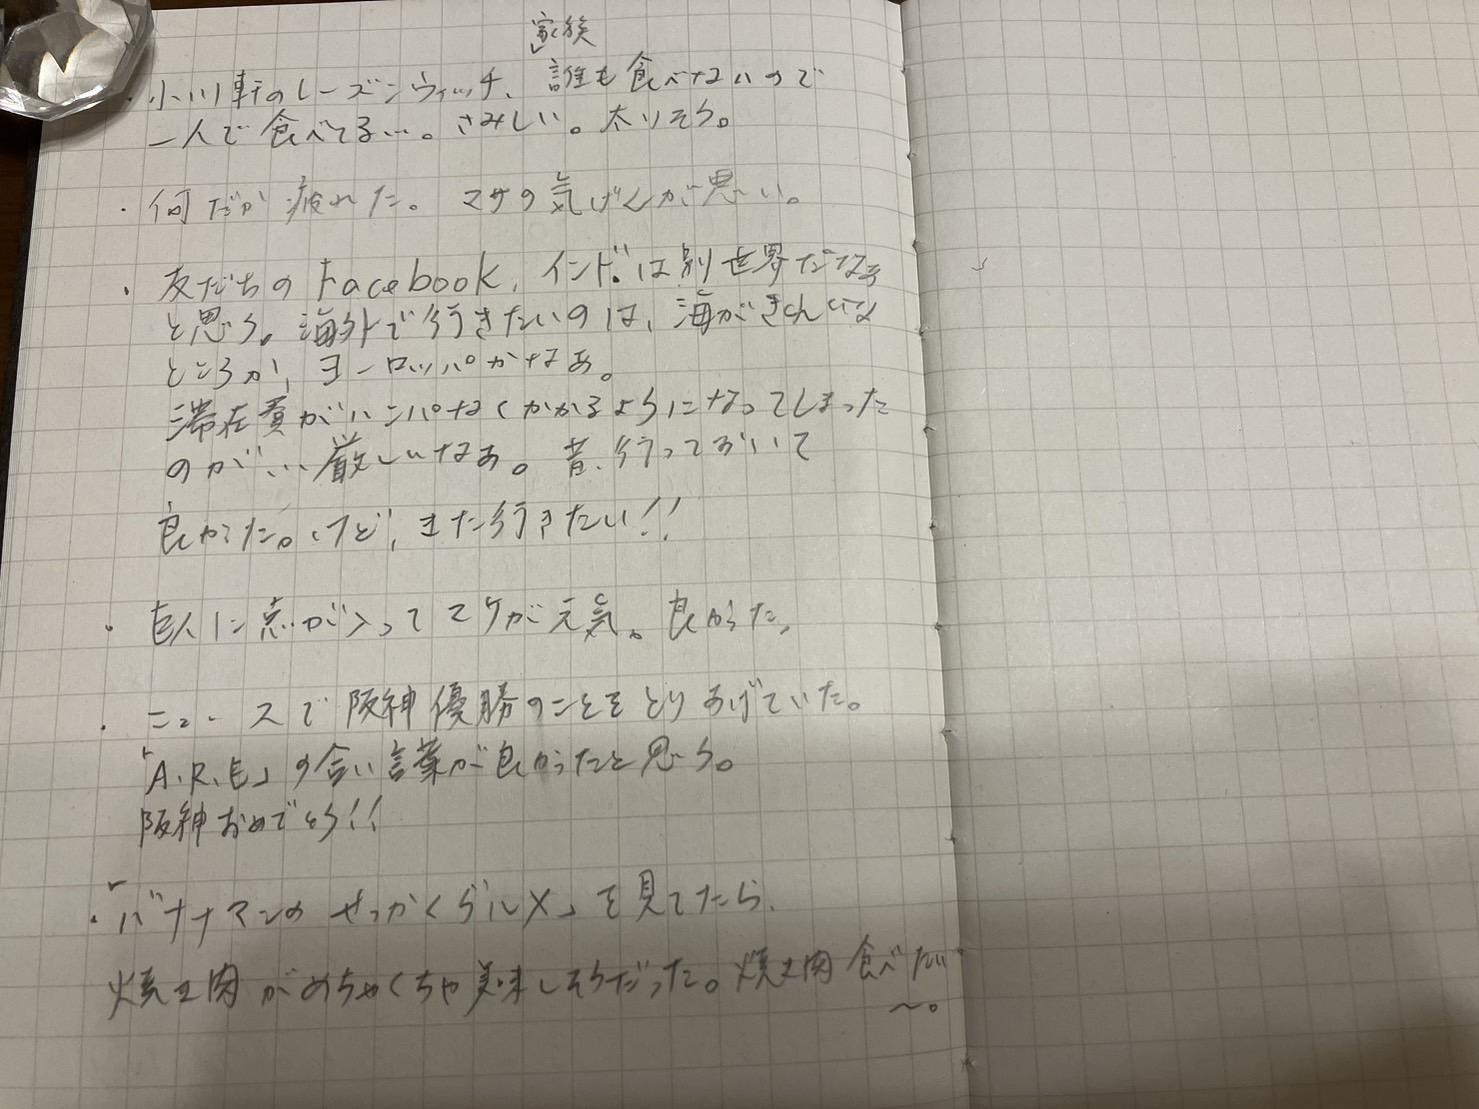 家族
・小川軒のレーズンウィッチ、誰も食べないので
一人で食べてる…。さみしい。太りそう。
・何だか疲れた。マサの気げんが悪い。
・友だちのFacebook、インド。は別世界だなあ
と思う。海外で行きたいのは、海がきれいな
ところか、ヨーロッパかなあ。
滞在費がハンパなくかかるようになってしまった
のが…厳しいなあ。昔、行っておいて
良かった。けど、また行きたい!!
・巨人に点が入ってマサが元気。良かった。
・ニュースで阪神優勝のことをとりあげていた。
「A.R.E」の合い言葉が良かったと思う。
阪神おめでとう!!
・「バナナマンのせっかくグルメ」を見てたら、
焼き肉がめちゃくちゃ美味しそうだった。焼き肉食べたい
〜。